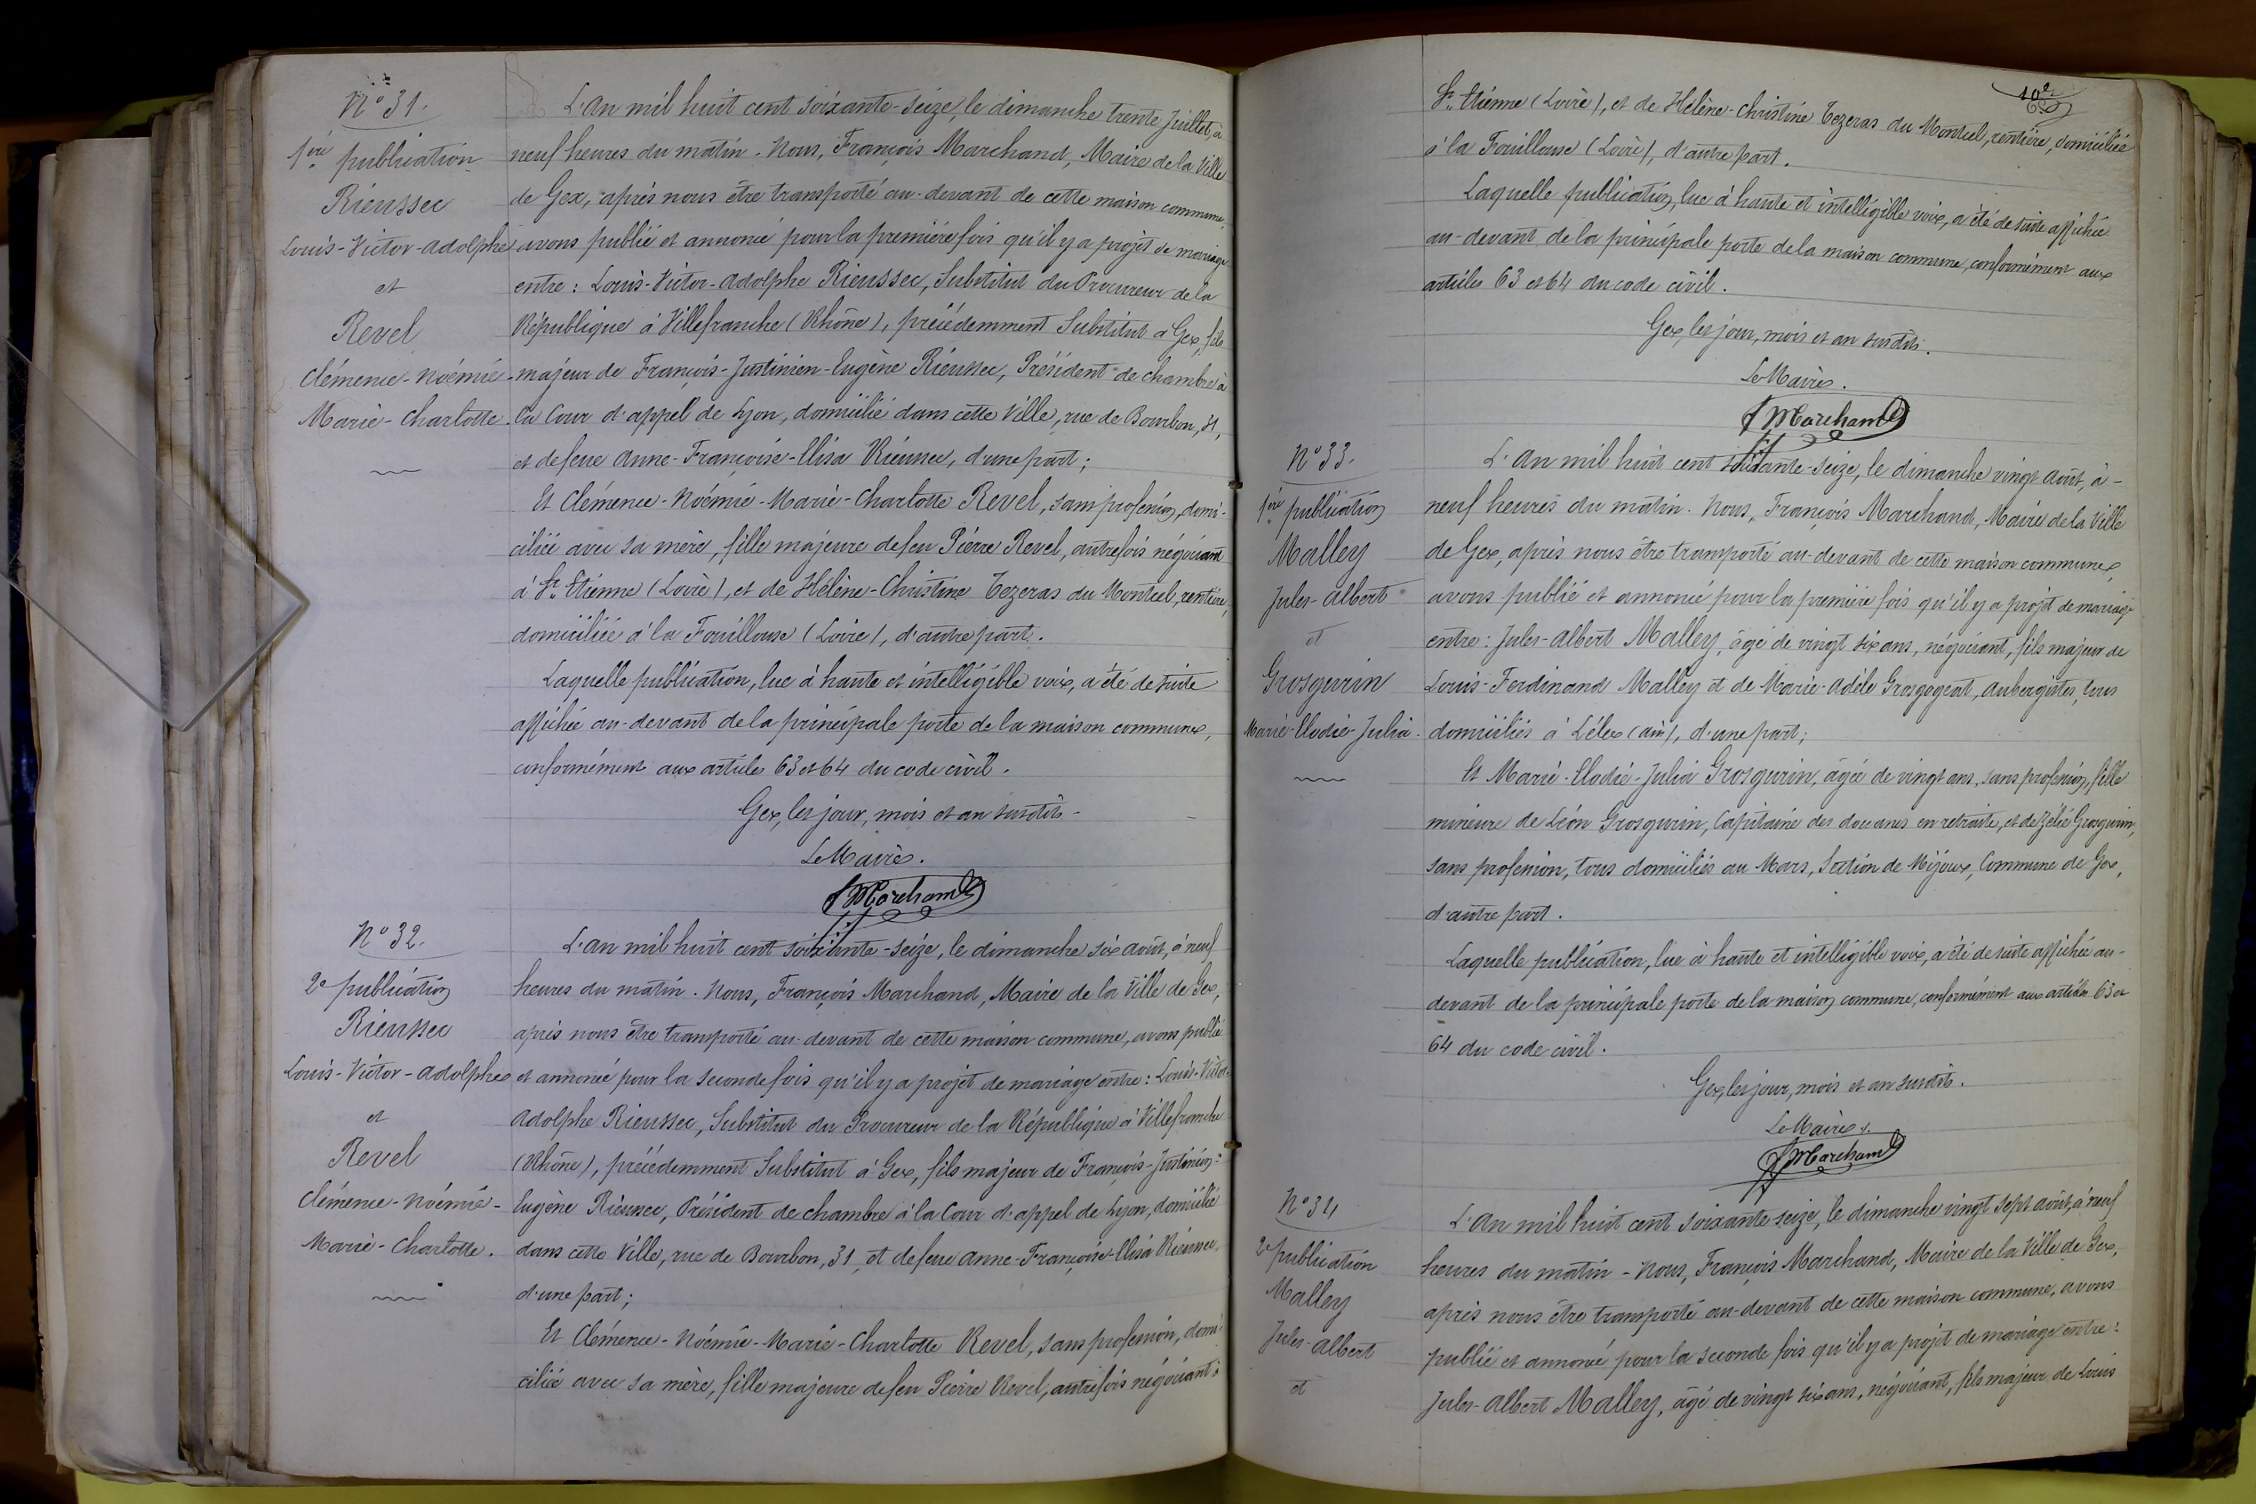 N° 31.
1ère publication
Rieussec
Louis-Victor-Adolphe
et
Revel
Clémence-Noémie-
Marie-Charlotte.
L'An mil huit cent soixante-seize, le dimanche trente Juillet, à
neuf heures du matin. Nous, François Marchand, Maire de la Ville
de Gex, après nous être transporté au-devant de cette maison commune,
avons publié et annoncé pour la première fois qu'il y a projet de mariage
entre: Louis-Victor-Adolphe Rieussec, Substitut du Procureur de la
République à Villefranche (Rhône), précédemment Substitut à Gex, fils
majeur de François-Justinien-Eugène Rieussec, Président de chambre à
la Cour d'appel de Lyon, domicilié dans cette Ville, rue de Bourbon, 31,
et de feue Anne-Françoise-Elisa Rieussec, d'une part;
Et Clémence-Noémie-Marie-Charlotte Revel, sans profession, domi-
ciliée avec sa mère, fille majeure de feu Pierre Revel, autrefois négociant
à St Etienne (Loire), et de Hélène-Christine Tezeras du Montcel, rentière,
domiciliée à la Fouillouse (Loire), d'autre part.
Laquelle publication, lue à haute et intelligible voix, a été de suite
affichée au-devant de la principale porte de la maison commune,
conformément aux articles 63 et 64 du code civil.
Gex, les jour, mois et an susdits.
Le Maire.
F Marchand
N° 32.
2e publication
Rieussec
Louis-Victor-Adolphe
et
Revel
Clémence-Noémie-
Marie-Charlotte.
L'an mil huit cent soixante-seize, le dimanche six août, à neuf
heures du matin. Nous, François Marchand, Maire de la Ville de Gex,
après nous être transporté au-devant de cette maison commune, avons publié
et annoncé pour la seconde fois qu'il y a projet de mariage entre: Louis-Victor-
Adolphe Rieussec, Substitut du Procureur de la République à Villefranche
(Rhône), précédemment Substitut à Gex, fils majeur de François-Justinien-
Eugène Rieussec, Président de chambre à la Cour d'appel de Lyon, domicilié
dans cette Ville, rue de Bourbon, 31, et de feue Anne-Françoise-Elisa Rieussec,
d'une part;
Et Clémence-Noémie-Marie-Charlotte Revel, sans profession, domi-
ciliée avec sa mère, fille majeure de feu Pierre Revel, autrefois négociant à
St Etienne (Loire), et de Hélène-Christine Tezeras du Montcel, rentière, domiciliée
à la Fouillouse (Loire), d'autre part.
Laquelle publication, lue à haute et intelligible voix, a été de suite affichée
au-devant de la principale porte de la maison commune, conformément aux
articles 63 et 64 du code civil.
Gex, les jour, mois et an susdits.
Le Maire.
F Marchand
N° 33.
1ère publication
Malley
Jules-Albert
et
Grosgurin
Marie-Elodie-Julia.
L'An mil huit cent soixante-seize, le dimanche vingt août, à
neuf heures du matin. Nous, François Marchand, Maire de la Ville
de Gex, après nous être transporté au-devant de cette maison commune,
avons publié et annoncé pour la première fois qu'il y a projet de mariage
entre: Jules-Albert Malley, âgé de vingt six ans, négociant, fils majeur de
Louis-Ferdinand Malley et de Marie-Adèle Grosgogeat, Aubergistes, tous
domiciliés à Lélex (Ain), d'une part;
Et Marie-Elodie-Julia Grosgurin, âgée de vingt ans, sans profession, fille
mineure de Léon Grosgurin, Capitaine des douanes en retraite, et de Zélie Grosgurin,
sans profession, tous domiciliés au Mars, Section de Mijoux, Commune de Gex,
d'autre part.
Laquelle publication, lue à haute et intelligible voix, a été de suite affichée au-
devant de la principale porte de la maison commune, conformément aux articles 63 et
64 du code civil.
Gex, les jour, mois et an susdits.
Le Maire.
F Marchand
N° 34
2e publication
Malley
Jules-Albert
et
L'An mil huit cent soixante seize, le dimanche vingt sept août, à neuf
heures du matin - Nous, François Marchand, Maire de la Ville de Gex,
après nous être transporté au-devant de cette maison commune, avons
publié et annoncé pour la seconde fois qu'il y a projet de mariage entre:
Jules-Albert Malley, âgé de vingt six ans, négociant, fils majeur de Louis